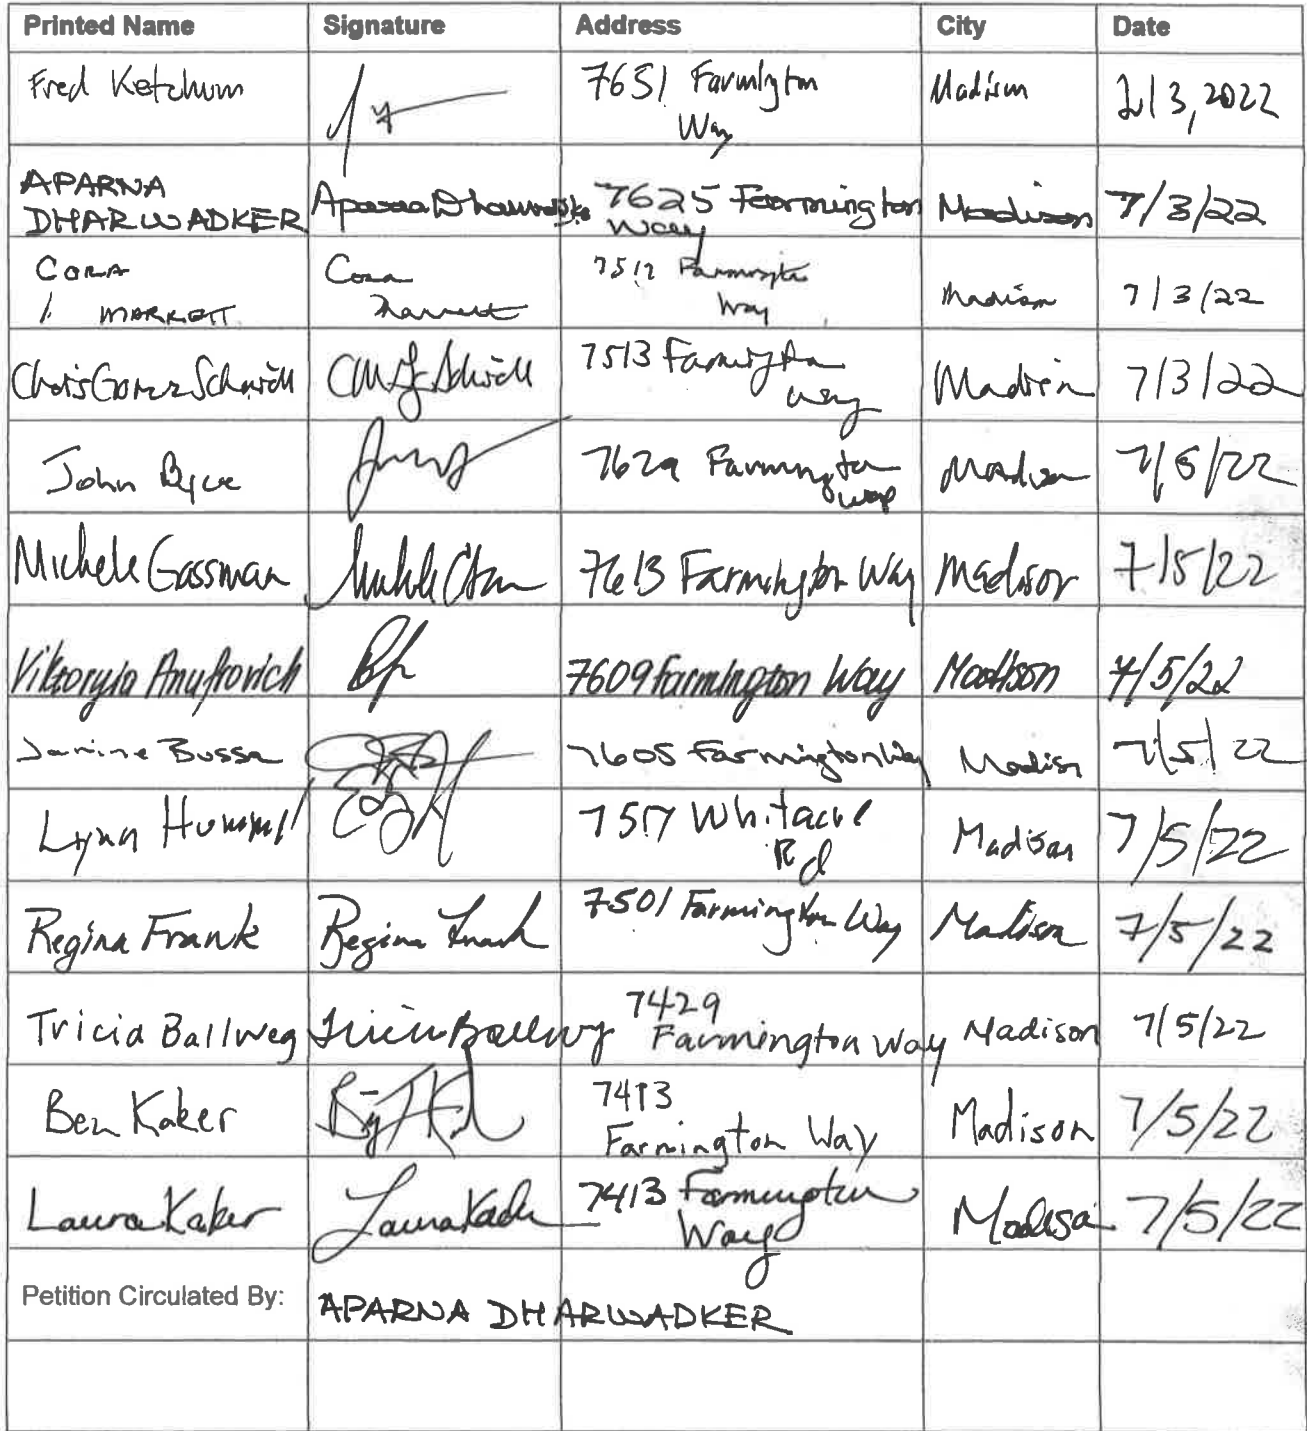 Printed Name Signature Address City Date
Fred Ketchum 7651 Farmington Madison 3, 2022
Way
APARNA
DHARWADKER Aparna Dharwadker 7625 Farmington Madison 7/3/22
Way
CORA Cora Farmington
MARRETT Marrett Way Madison 7/3/22
7513 Farmington
Way Madison 7/3/22
John 7629 Farmington Madison
Way
Michele Gassman 7613 Farmington Way Madison 7/5/22
Viktoryia Anufrovich 7609 Farmington Way Madison 7/5/22
Janine Bussa 7605 Farmington Way Madison 7/5/22
Lynn Hummel 7517 Whitacre Madison 7/5/22
Rd
Regina Frank Regina Frank 7501 Farmington Way Madison 7/5/22
Tricia Ballweg Tricia Ballweg 7429
Farmington Way Madison 7/5/22
Ben Kaker 7413
Farmington Way Madison 7/5/22
Laura Kaker Laura Kaker 7413 Farmington
Way Madison 7/5/22
Petition Circulated By: APARNA DHARWADKER